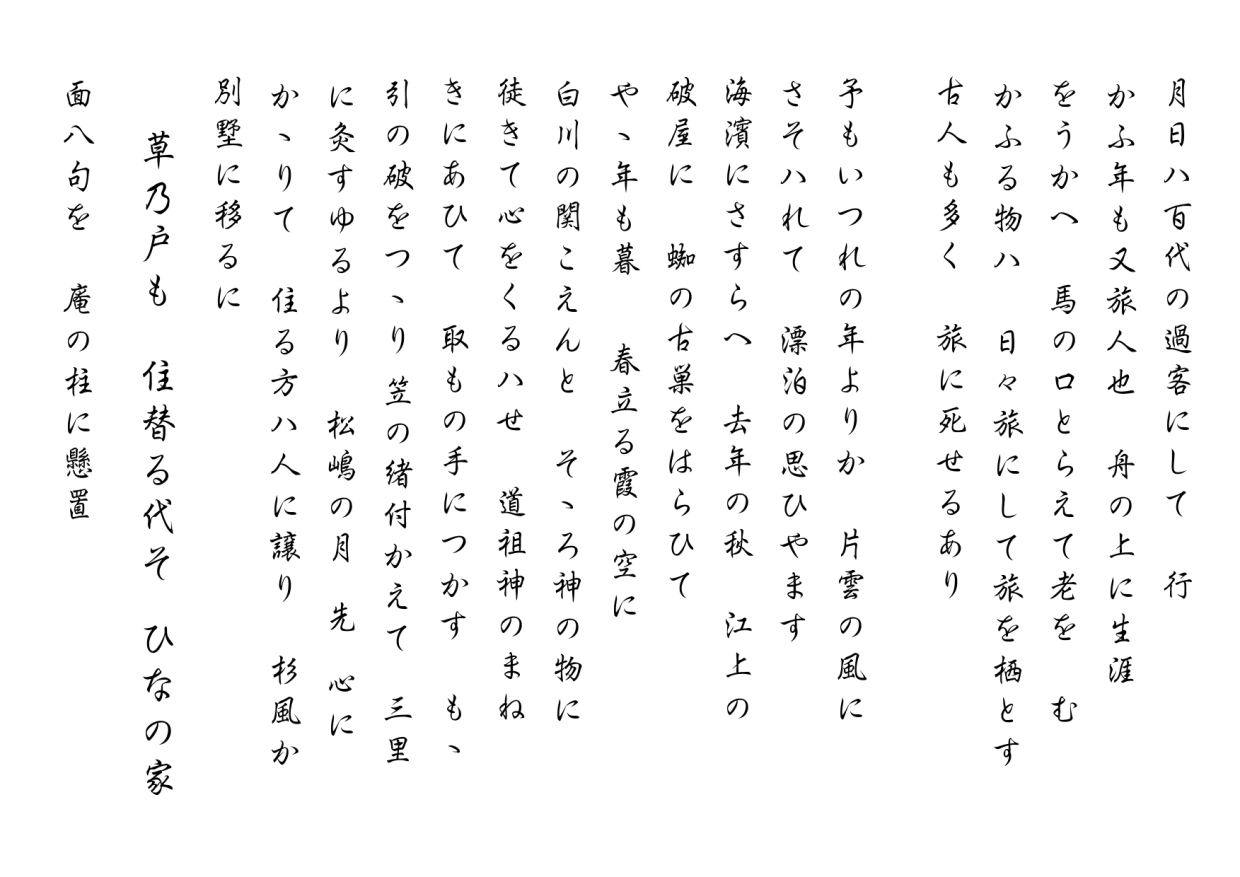 月日ハ百代の過客にして　行
かふ年も又旅人也　舟の上に生涯
をうかへ　馬の口とらえて老を　む
かふる物ハ　日々旅にして旅を栖とす
古人も多く　旅に死せるあり
予もいつれの年よりか　片雲の風に
さそハれて　漂泊の思ひやます
海濱にさすらへ　去年の秋　江上の
破屋に　蜘の古巣をはらひて
やゝ年も暮　春立る霞の空に
白川の関こえんと　そゝろ神の物に
徒きて心をくるハせ　道祖神のまね
きにあひて　取もの手につかす　もゝ
引の破をつゝり笠の緒付かえて　三里
に灸すゆるより　松嶋の月　先　心に
かゝりて　住る方ハ人に譲り　杉風か
別墅に移るに
草乃戸も　住替る代そ　ひなの家
面八句を　庵の柱に懸置